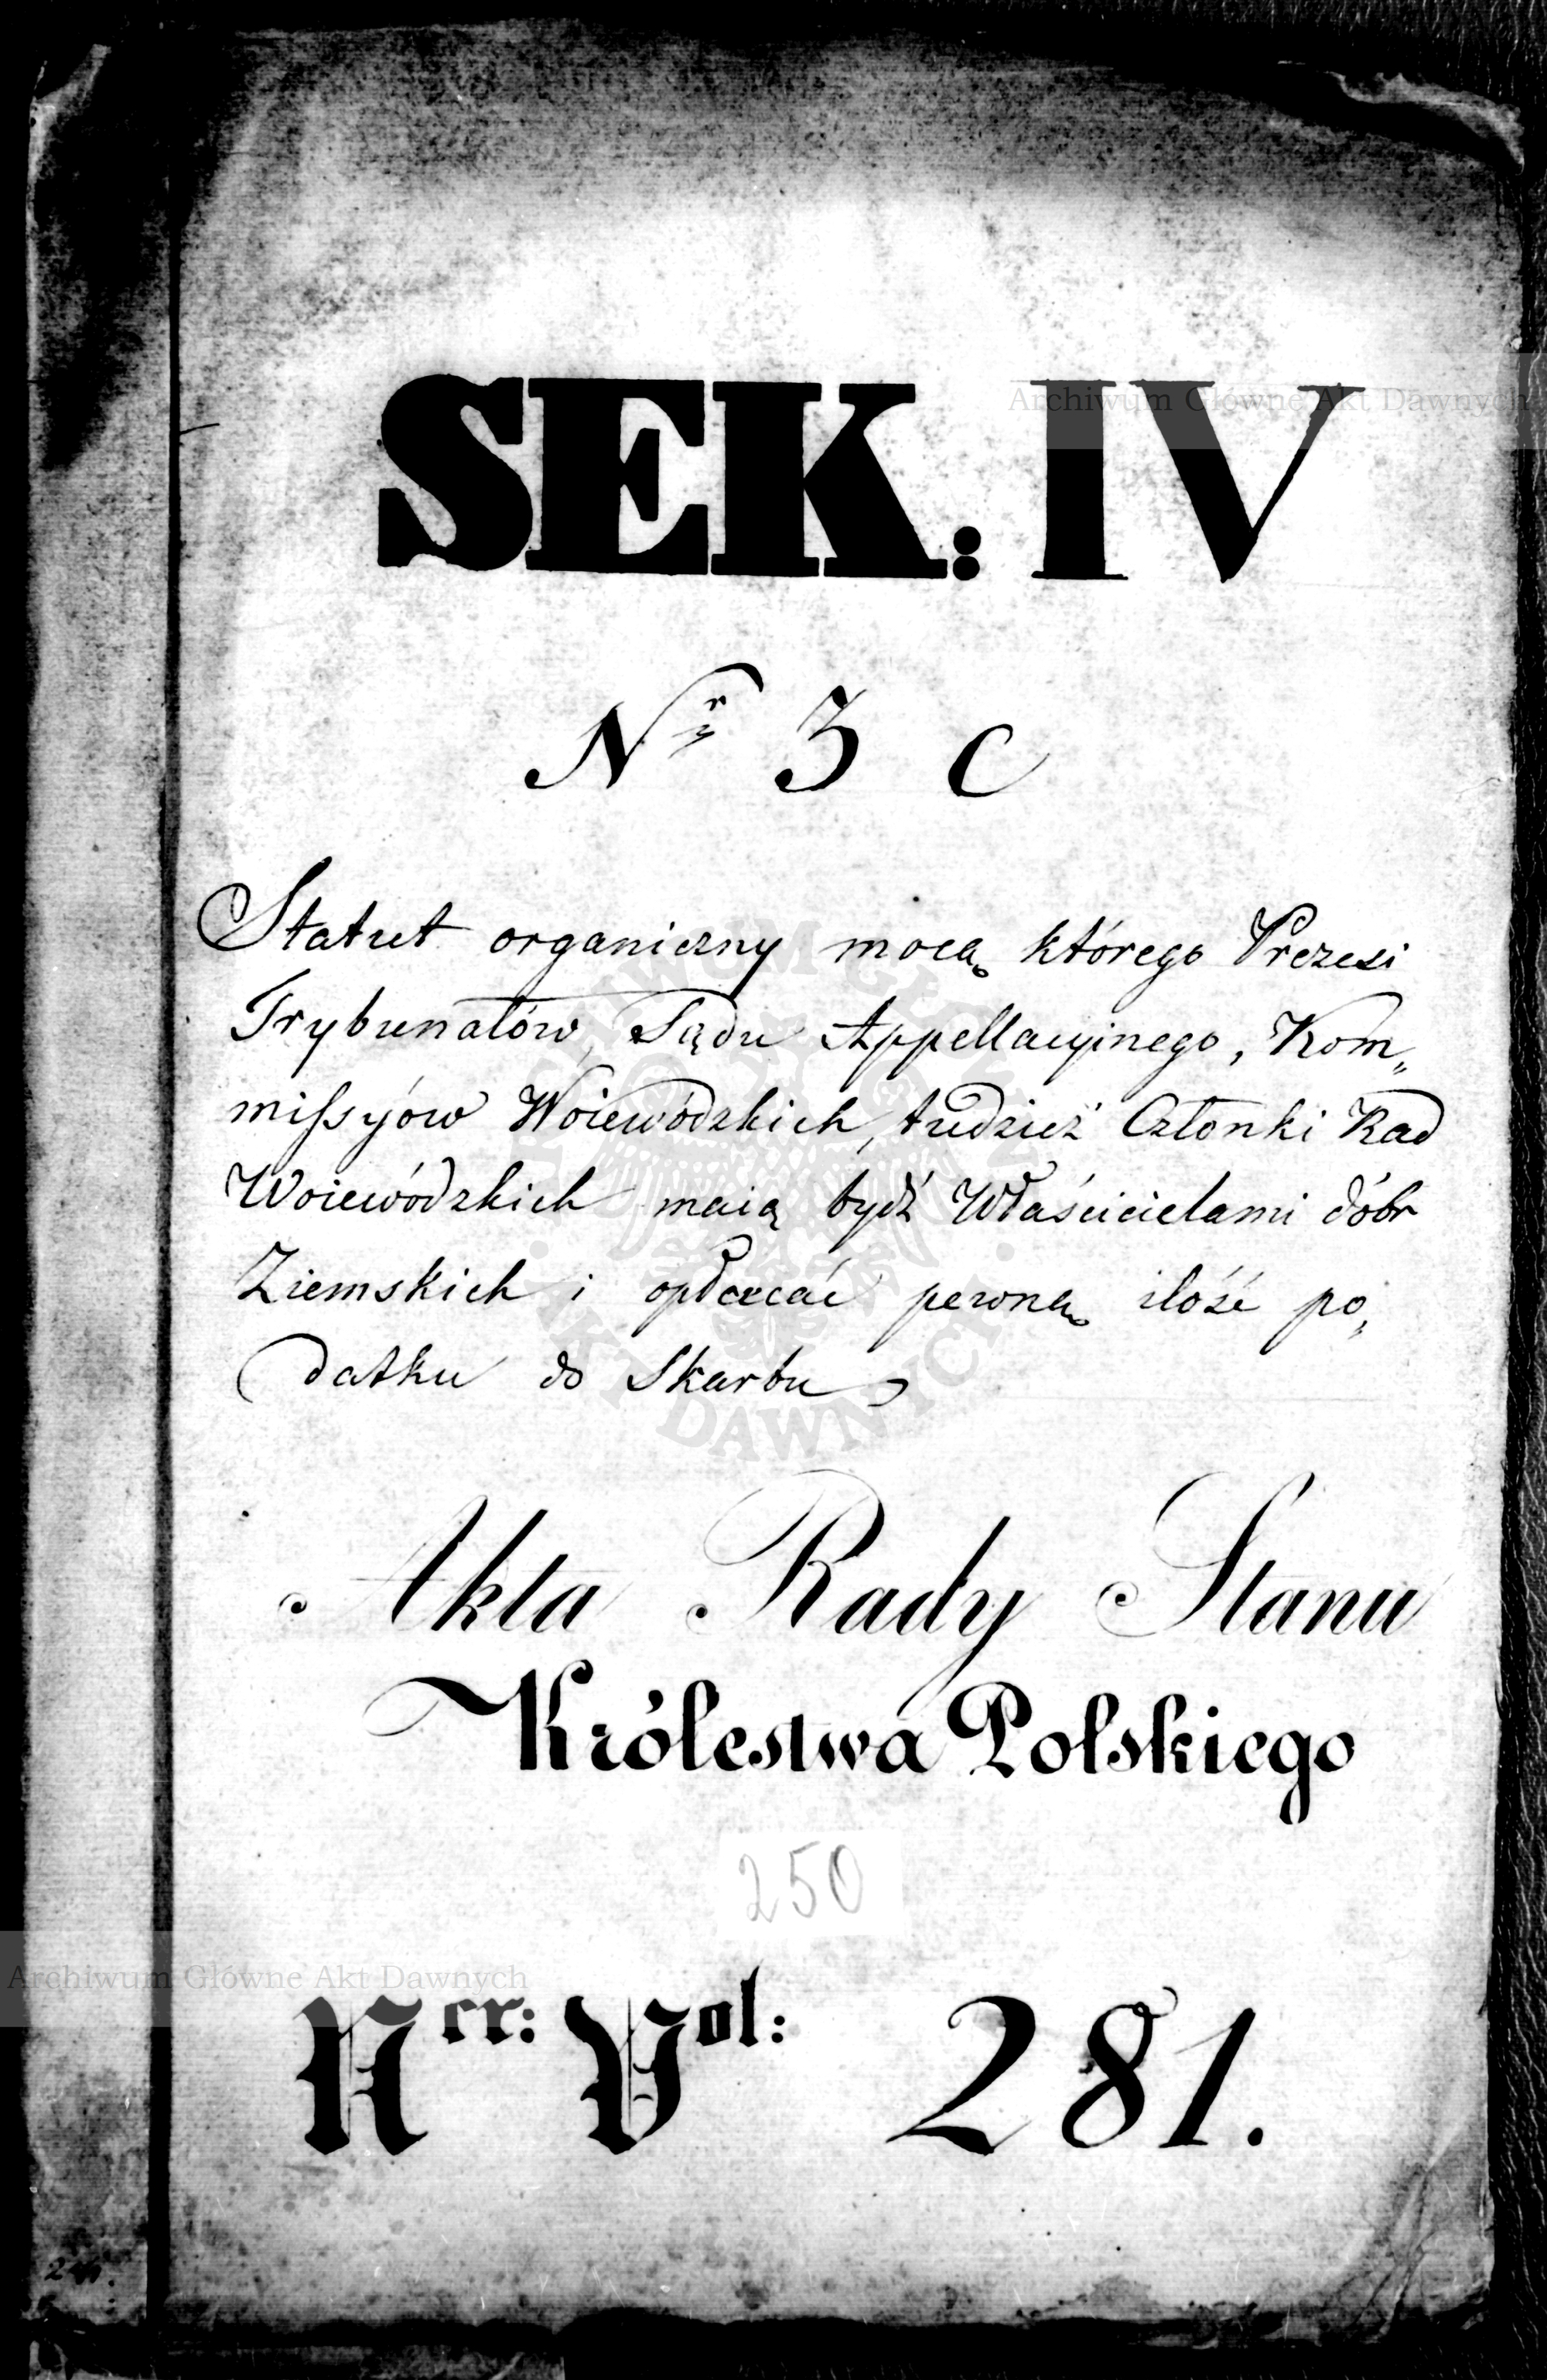 SEK: IV
Nr 3 C
Statut organiczny mocą którego Prezesi
Trybunałów, Sądu Appellacyinego, Kom„
missyów Woiewódzkich, tudzież Członki Rad
Woiewódzkich maią bydź Właścicielami dóbr
Ziemskich i opłacać pewną ilość po„
datku do Skarbu
Akta Rady Stanu
Królestwa Polskiego
250
Ner: Vol: 281.
Archiwum Główne Akt Dawnych
Archiwum Główne Akt Dawnych
ARCHIWUM GŁÓWNE AKT DAWNYCH